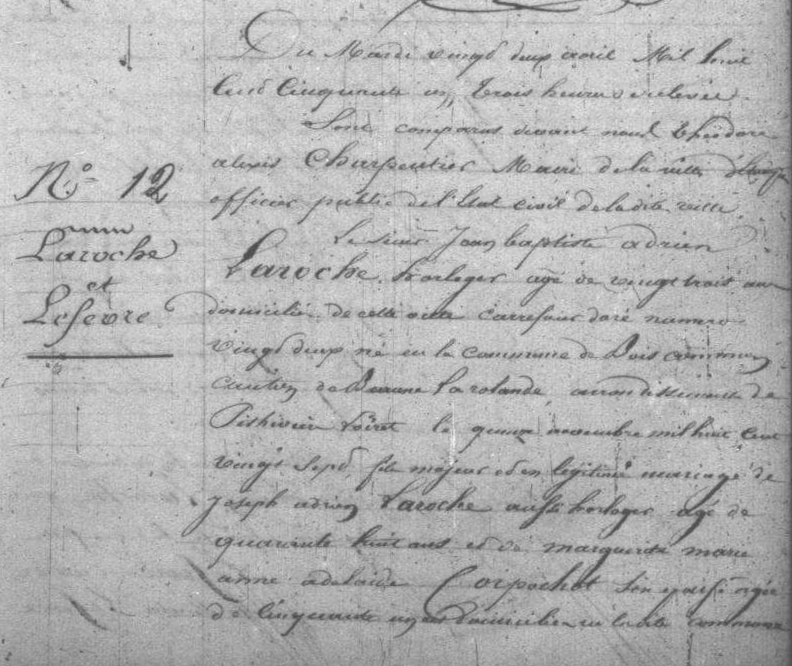 Du Mardi vingt deux avril Mil huit
Cent Cinquante un, trois heures de relevée.
Sont comparus devant nous Théodore
alexis Charpentier Maire de la ville d'Etampes
officier public de l'Etat civil de la dite ville
N° 12
Laroche
et
Lefevre
Le sieur Jean baptiste adrien
Laroche, horloger, agé de vingt trois ans
domicilié de cette ville carrefour doré numero
vingt deux né en la commune de Bois commun
canton de Beaune la rolande, arrondissement de
Pithiviers Loiret le quinze novembre mil huit cent
vingt sept, fils majeur et en légitime mariage de
joseph adrien Laroche aussi horloger agé de
quarante huit ans et de marguerite marie
anne adelaide Corpochot son epouse agée
de Cinquante un ans domiciliés en la dite commune